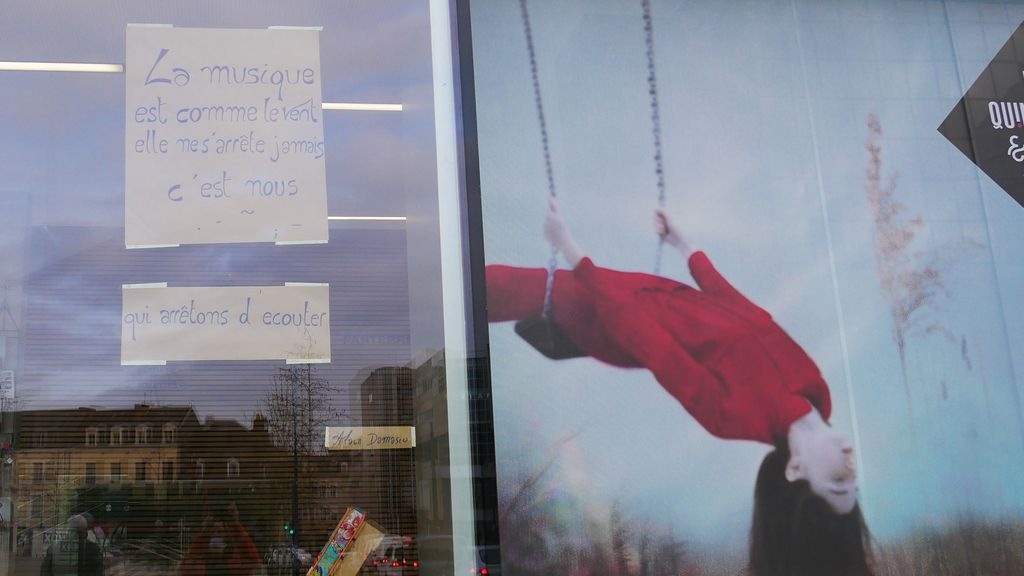 La musique
est comme le vent
elle ne s'arrête jamais
c'est nous
qui arrêtons d'ecouter
Alain Damasio
QUI
&